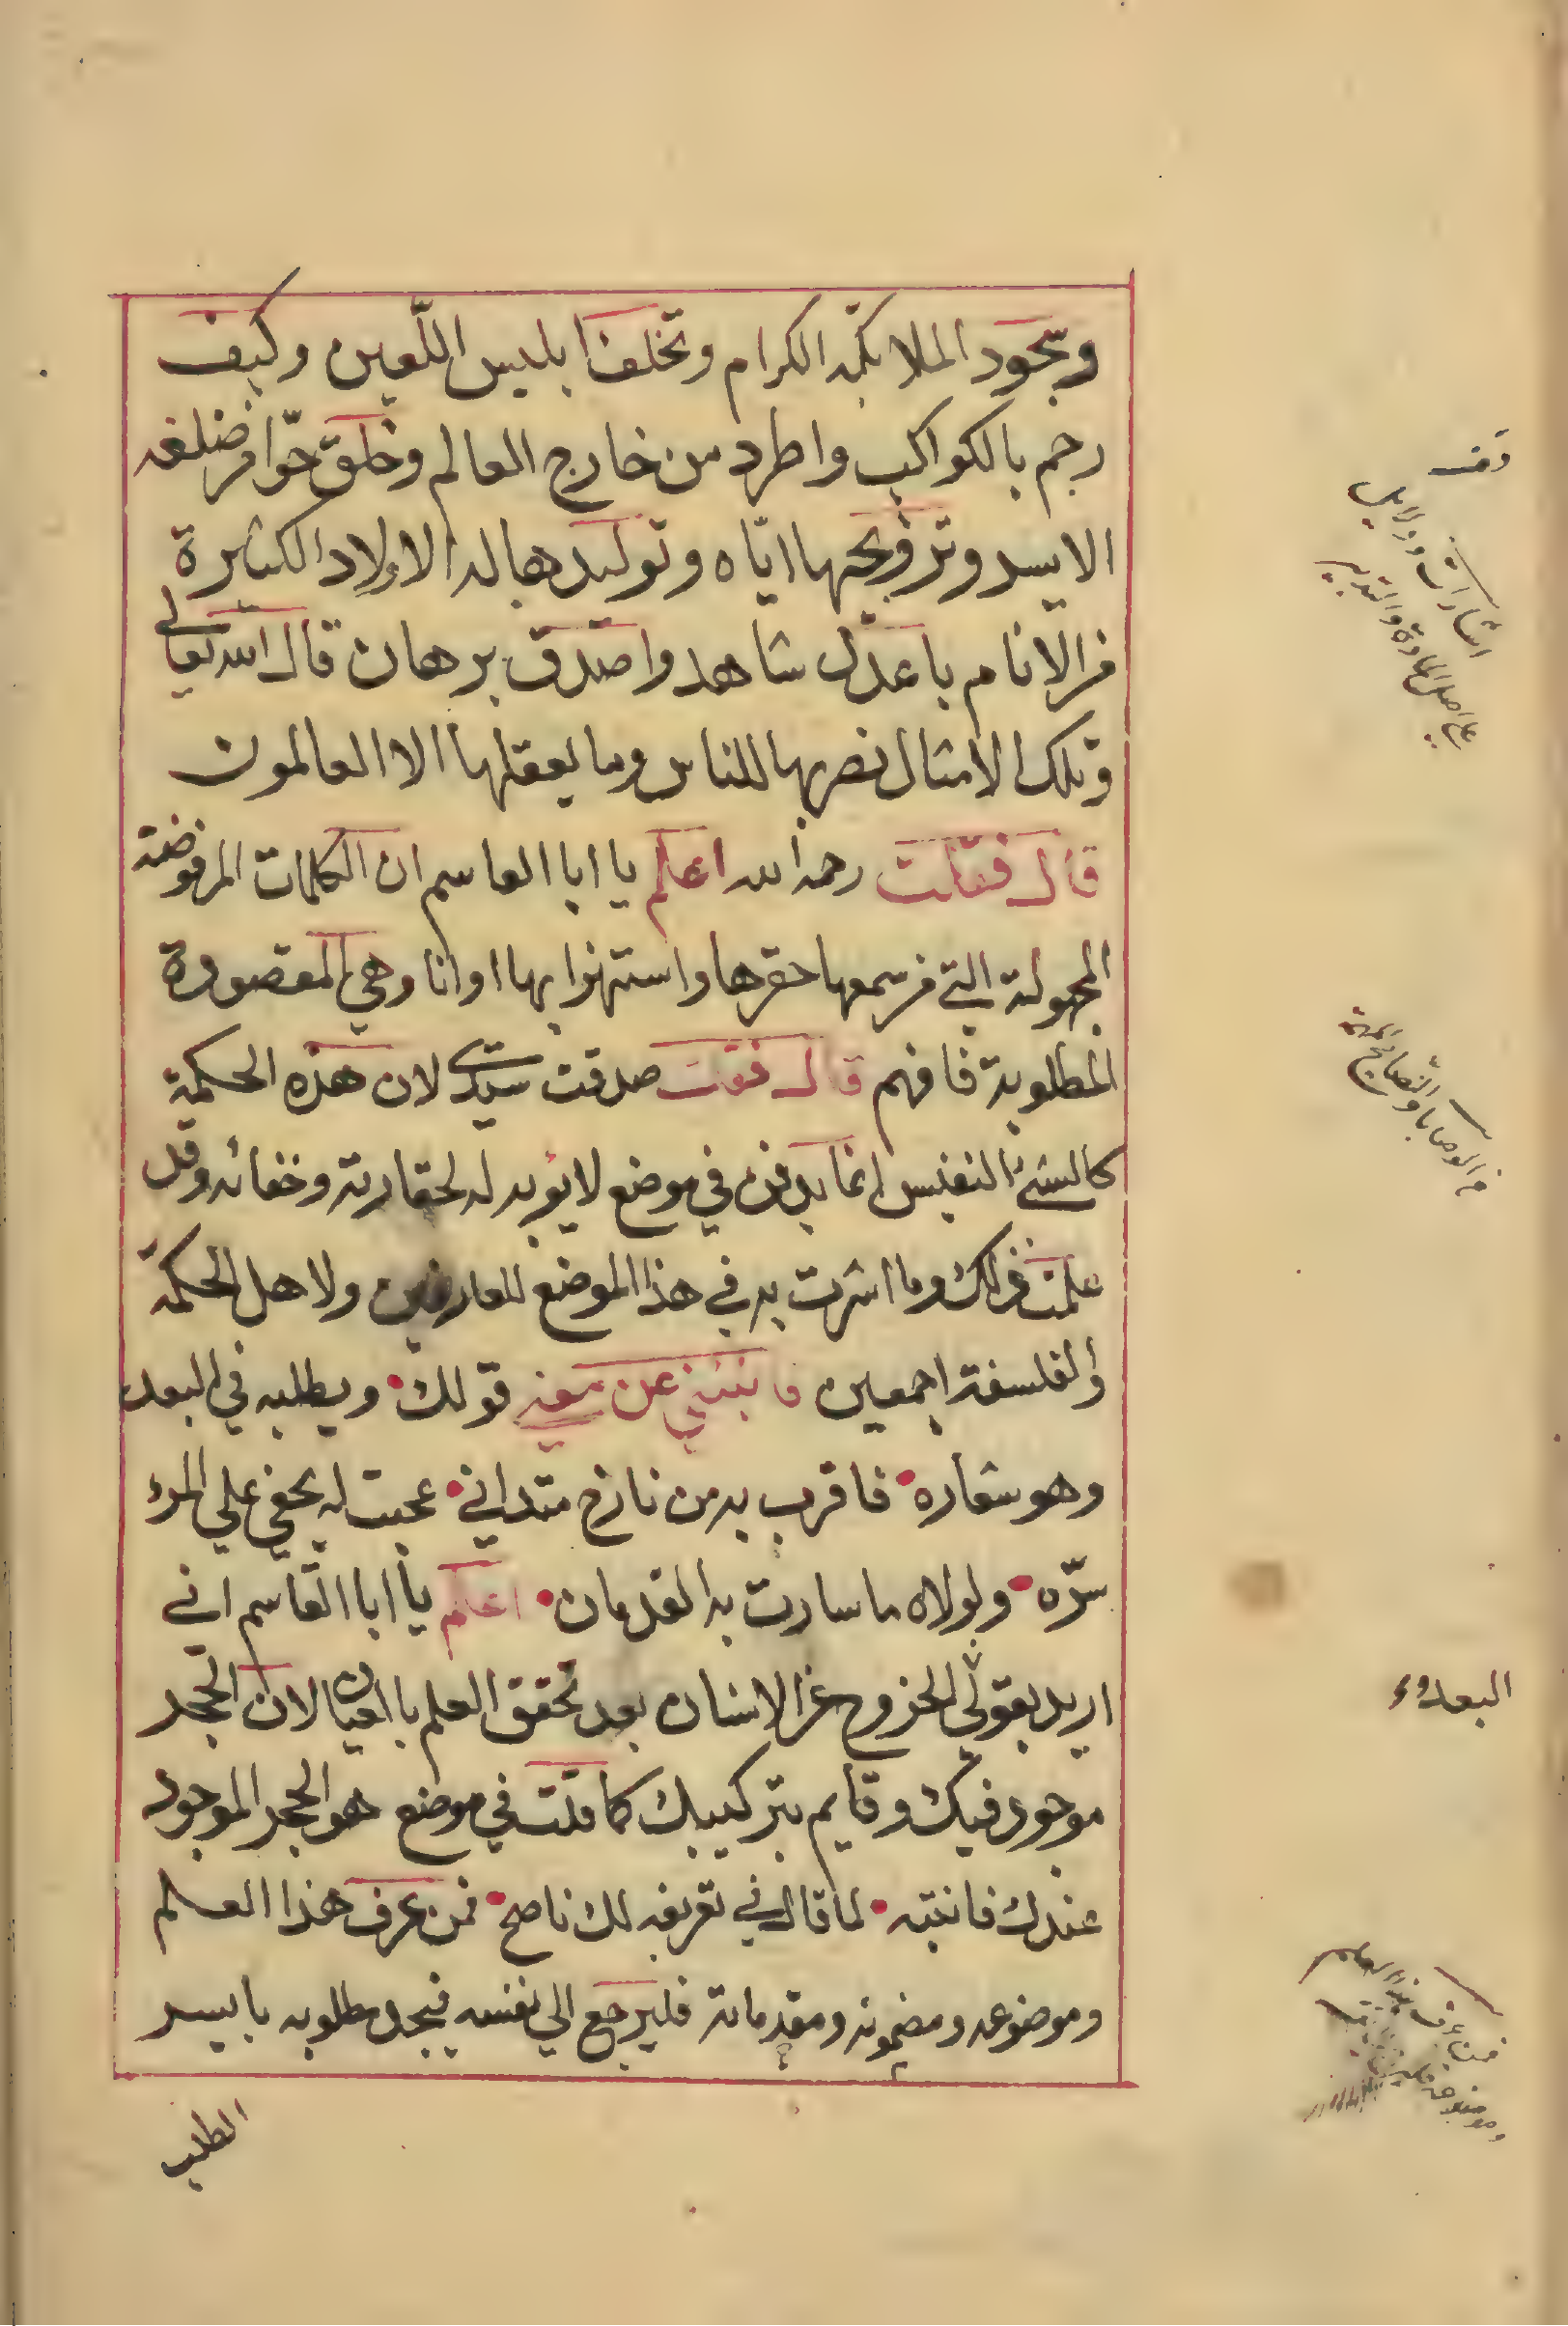 وسجود الملائكة الكرام وتخلف ابليس اللّعين وكيف
رجم بالكواكب واطرد من خارج العالم وخلق حوّا من ضلعه
الايسر وتزويجها ايّاه وتوليدها له الاولاد الكثيرة
من الانام باعدل شاهد واصدق برهان قال الله تعالى
وتلك الامثال نضربها للناس وما يعقلها الا العالمون
قال فقلت رحمه الله اعلم يا ابا القاسم ان الكلمات المرفوضة
المجهولة التي من سمعها حقرها واستهزا بها اوانا وهي المقصودة
المطلوبة فافهم قال فقلت صدقت سيدي لان هذه الحكمة
كالشئ النفيس انما يدفن في موضع لا يؤبه له لحقارته وخفائه وقد
علمت ذلك وما اشرت به في هذا الموضع للعارفين ولاهل الحكمة
والفلسفة اجمعين فانبئني عن معنى قولك ويطلبه في البعد
وهو شعاره فاقرب به من نازح متداني عجبت له يخفي علي المرء
سرّه ولولاه ما سارت به القدمان اعلم يا ابا القاسم اني
اريد بقولي الخروج عن الانسان بعد تحقق العلم بالعيان لان الحجر
موجود فيك وقايم بتركيبك كما قلت في موضع هو الحجر الموجود
عندك فانتبه لما قال في تعريفه لك ناصح فمن عرف هذا العلم
وموضوعه ومضمونه ومقدماته فليرجع الي نفسه فيجد مطلوبه بايسر
الطلب
قف
اشارات ودلايل
علي اصل المادة والتدبير
من الوصايا والنصائح المهمة
البعدوء
فمن عرف هذا العلم
وموضوعه